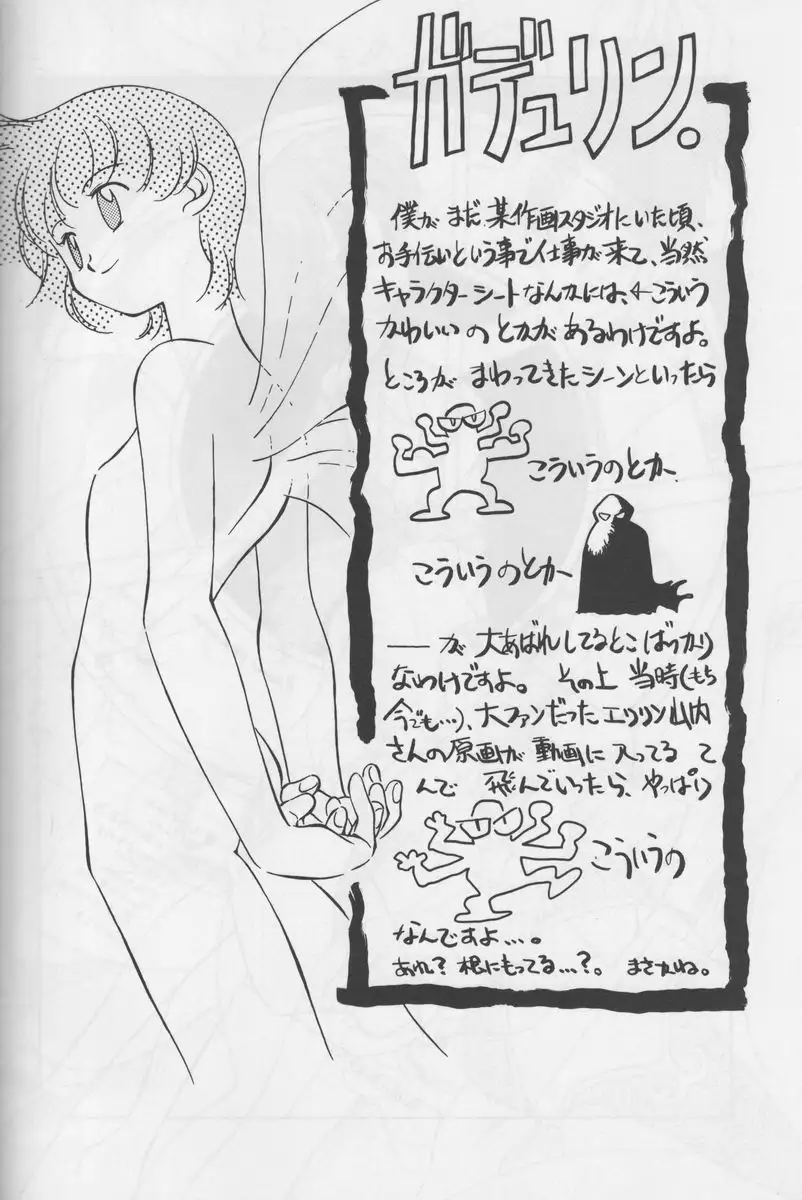 ガデュリン。
僕がまだ、某作画スタジオにいた頃、
お手伝いという事で仕事が来て、当然
キャラクターシートなんかには、←こういう
かわいいのとかがあるわけですよ。
ところが まわってきたシーンといったら
こういうのとか
こういうのとか
――が 大あばれしてるとこばっかり
なわけですよ。 その上 当時(もち
今でも…)、大ファンだったエツリン山内
さんの原画が 動画に入ってる て
んで 飛んでいったら、やっぱり
こういうの
なんですよ…。
あれ? 根にもってる…?。 まさかね。